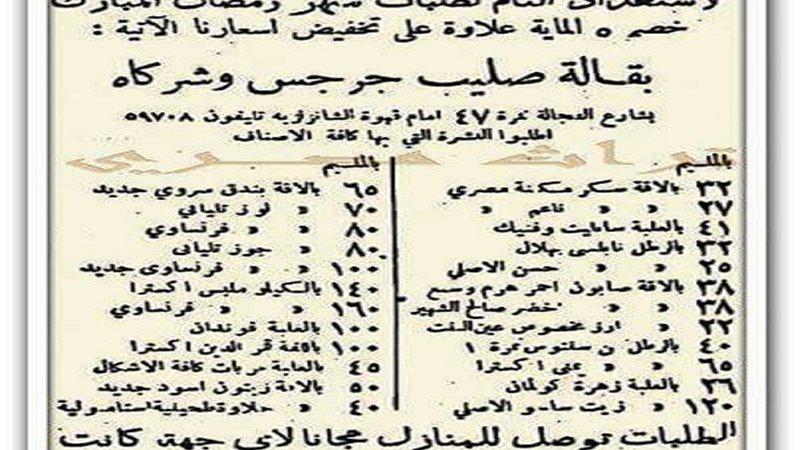 لاستعدادى التام لطلبات شهر رمضان المبارك
خصم ٥ الماية علاوة على تخفيض اسعارنا الآتية :
بقالة صليب جرجس وشركاه
بشارع الفجالة نمرة ٤٧ امام قهوة الشانزلزيه تليفون ٥٩٧٠٨
اطلبوا النشرة التي بها كافة الاصناف
تراث مصري
بالمليم
٣٢ بالاقة سكر مكنة مصري
٢٧ » » ناعم »
٤١ بالعلبة سامليت وفنيك
٣٢ بالرطل نابلسى بهلال
٢٥ » » حسن الاصلي
٣٨ بالاقة صابون احمر هرم وسبع
٣٨ » » خضر صالح الشهير
٢٢ » ارز مخصوص عين البنت
٤٠ بالرطل بن سنتوس نمرة ١
٦٥ » » يمنى اكسترا
٢٦ بالعلبة زهرة كولمان
١٢٠ » زيت الاصلي
بالمليم
٦٥ بالاقة بندق سروي جديد
٧٠ » لوز تليانى
٨٠ » » فرنساوى
٨٠ » جوز تليانى
١٠٠ » » فرنساوى جديد
١٤٠ بالكيلو ملبس اكسترا
١٦٠ » » فرنساوي
١٠٠ بالعلبة فوندان
١٠٠ قمر الدين اكسترا
٤٥ بالعلبة مربات كافة الاشكال
٥٠ بالاقة زيتون اسود جديد
٤٠ » حلاوة طحينية استامبولية
الطلبات توصل للمنازل مجانا لاى جهة كانت